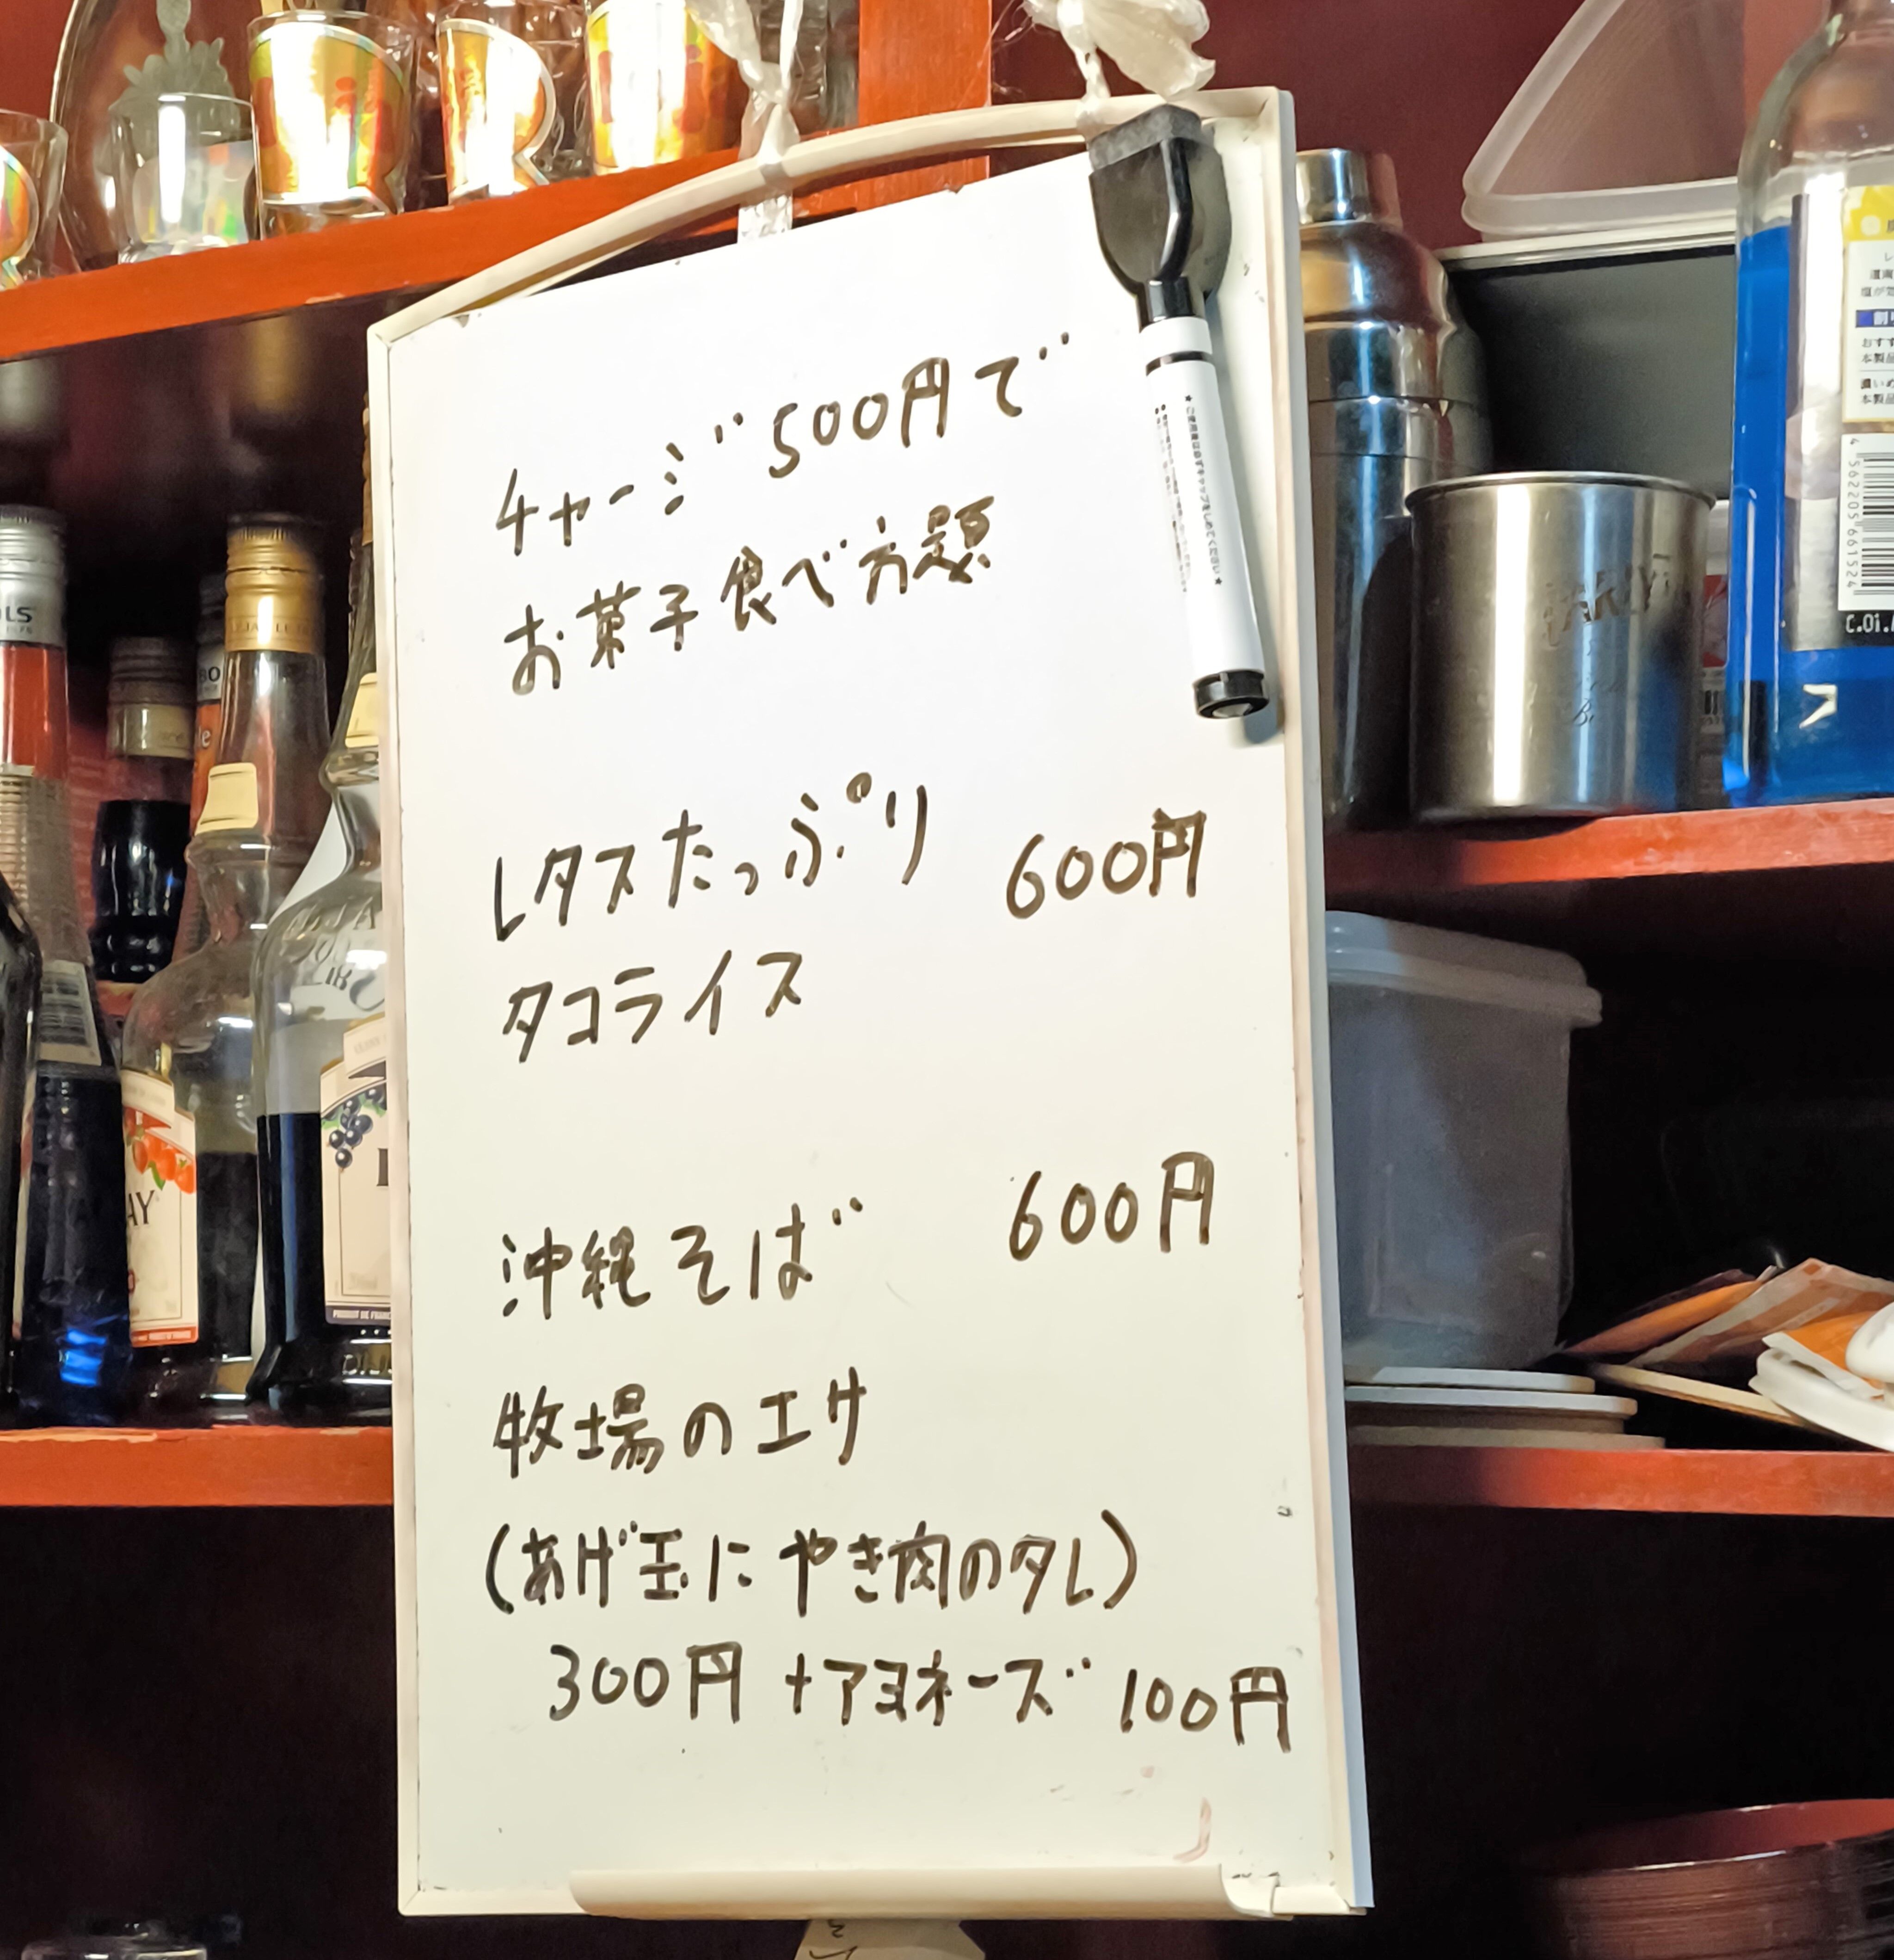 チャージ500円で
お菓子食べ方題
レタスたっぷり 600円
タコライス
沖縄そば 600円
牧場のエサ
(あげ玉にやき肉のタレ)
300円 +マヨネーズ 100円
4 562205 661524
C.01.